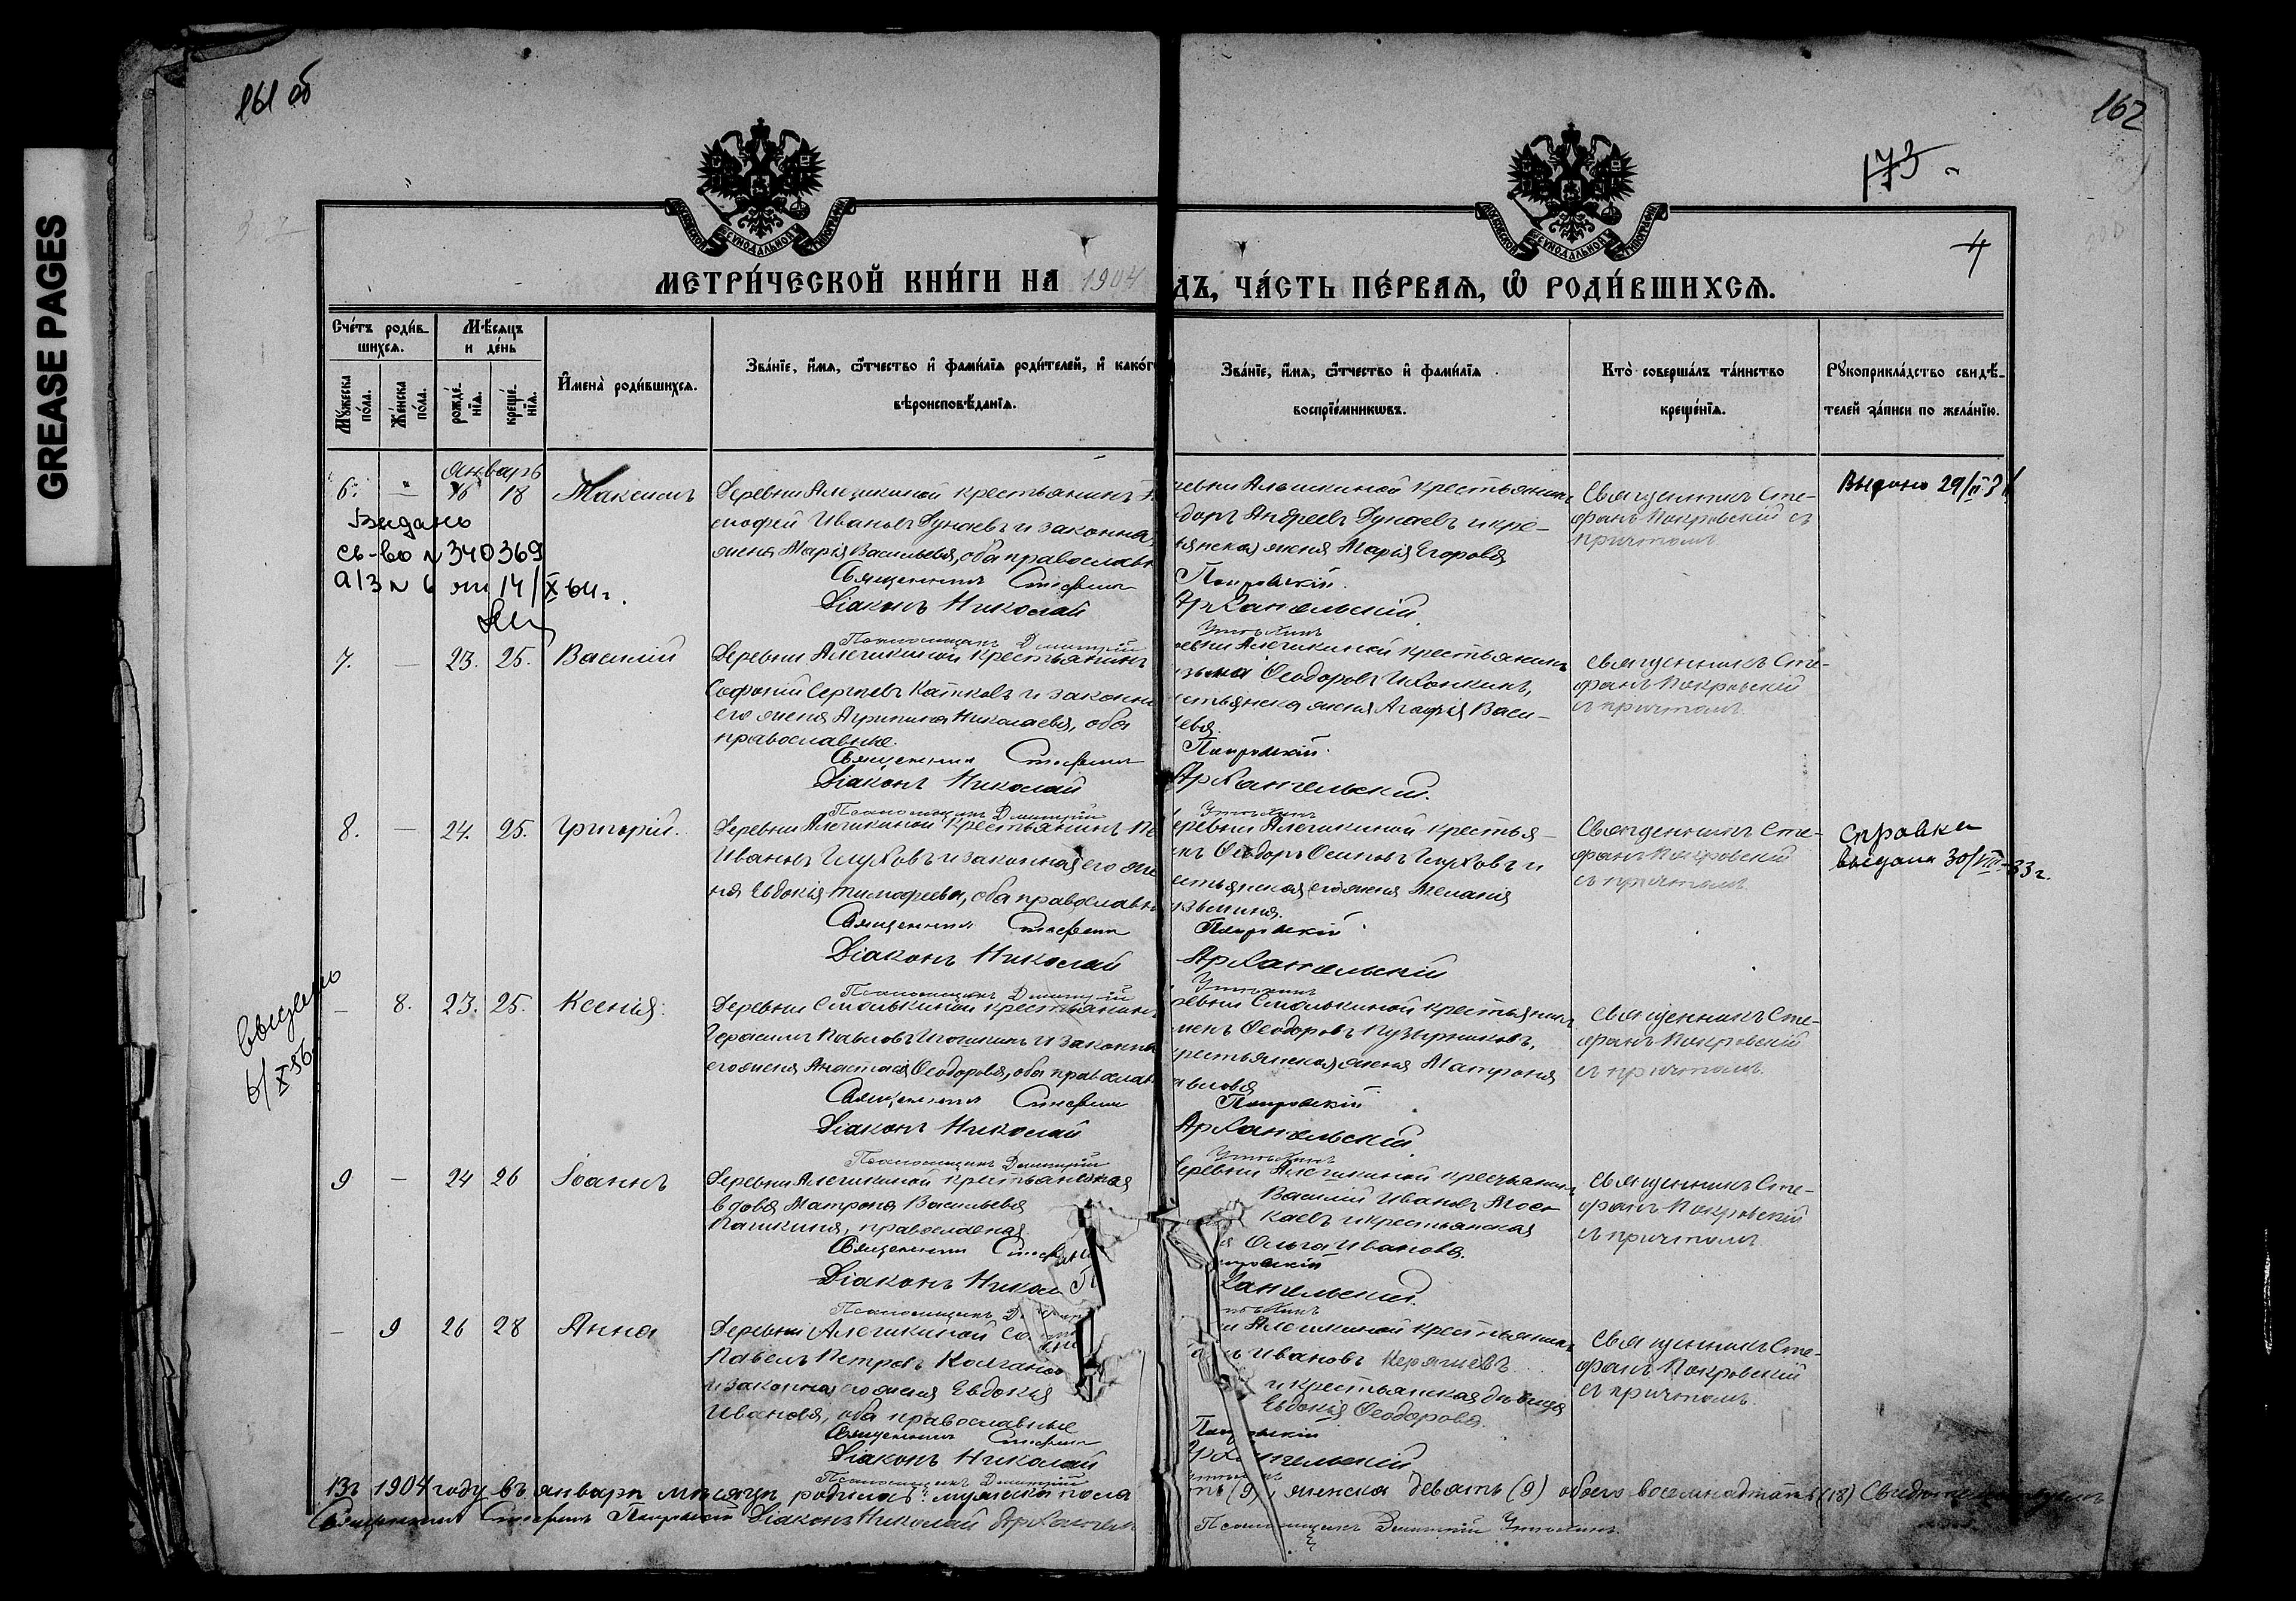 GREASE PAGES
161 об
162
173
4
МЕТРИ́ЧЕСКОЙ КНИ́ГИ НА 1904
ДЪ, ЧА́СТЬ ПЕ́РВАЯ, Ѿ РОДИ́ВШИХСЯ.
Сче́тъ роди́в-
шихся.
Мѣ́сяцъ
и де́нь
Мꙋ́жеска
по́ла.
Же́нска
по́ла.
рожде́-
нїя.
креще́-
нїя.
И҆мена̀ роди́вшихся.
Зва́нїе, и҆́мя, ѻ҆́тчество и҆ фами́лїя роди́телей, и҆ како́г
вѣроисповѣ́данїя.
Зва́нїе, и҆́мя, ѻ҆́тчество и҆ фами́лїя
воспрїе́мникωвъ.
Кто̀ соверша́лъ та́инство
креще́нїя.
Рꙋкоприкла́дство свидѣ́-
телей за́писи по жела́нїю.
январь
6. — 16 18 Максимъ
Деревни Алешкиной крестьянинъ
мофей Ивановъ Дунаевъ и законная
жена Марія Васильева, оба православн
Священникъ Стефанъ
Діаконъ Николай
Псаломщикъ Димитрій
ревни Алешкиной крестьянинъ
доръ Андреевъ Дунаевъ и кре-
тьянская жена Марія Егорова
Покровскій.
Архангельскій.
Утѣхинъ
Священникъ Сте-
фанъ Покровскій съ
причтомъ
Выдано 29/II 3
Выдано
св-во N 340369
а/з N 6 от 14/X 64г.
7. — 23. 25. Василій
Деревни Алешкиной крестьянинъ
Софоній Сергѣевъ Катковъ и законна
его жена Агрипина Николаева, оба
православные.
Священникъ Стефанъ
Діаконъ Николай
Псаломщикъ Димитрій
ревни Алешкиной крестьянинъ
зьма Ѳеодоровъ Ихонкинъ,
естьянска жена Агафія Васи-
ева.
Покровскій.
Архангельскій.
Утѣхинъ
Священникъ Сте-
фанъ Покровскій
съ причтомъ.
8. — 24. 25. Григорій.
Деревни Алешкиной крестьянинъ Пе
Ивановъ Глуховъ и законная его же
на Евдокія Тимофеева, оба православн
Священникъ Стефанъ
Діаконъ Николай
Псаломщикъ Димитрій
еревни Алешкиной крестья-
нъ Ѳеодоръ Осиповъ Глуховъ и
естьянская его жена Меланія
узьмина.
Покровскій
Архангельскій
Утѣхинъ
Священникъ Сте-
фанъ Покровскій
съ причтомъ
Справка
выдана 30/VIII-33г.
выдано
6/X 56
— 8. 23. 25. Ксенія.
Деревни Смолькиной крестьянинъ
Герасимъ Павловъ Игошкинъ и законна
его жена Анастасія Ѳеодорова, оба православн
Священникъ Стефанъ
Діаконъ Николай
Псаломщикъ Димитрій
ревни Смолькиной крестьянинъ
менъ Ѳеодоровъ Пузырниковъ,
крестьянская жена Матрона
авлова
Покровскій
Архангельскій.
Утѣхинъ
Священникъ Сте-
фанъ Покровскій
съ причтомъ.
9 — 24 26 Іоаннъ
Деревни Алешкиной крестьянская
вдова Матрона Васильева
Пашкина, православная
Священникъ Стефанъ
Діаконъ Никол
Псаломщикъ
еревни Алешкиной крестьянинъ
Василій Ивановъ Мось
каевъ и крестьянская
Ольга Иванова.
ровскій
хангельскій.
тѣхинъ
Священникъ Сте-
фанъ Покровскій
съ причтомъ
— 9 26 28 Анна
Деревни Алешкиной со
Павелъ Петровъ Колганов
и законная его жена Евдокія
Иванова, оба православные
Священникъ Стефанъ
Діаконъ Николай
Псаломщикъ Димитрій
и Алешкиной крестьянинъ
ъ Ивановъ
и крестьянская дѣвица
Евдокія Ѳеодорова.
Покровскій
Архангельскій
Священникъ Сте-
фанъ Покровскій
съ причтомъ.
Въ 1904 году въ январѣ мѣсяцѣ родилось: мужска пола
ть (9), женска девять (9) обоего восемнадцать (18) Свидѣтельствуемъ
Священникъ Стефанъ Покровскій Діаконъ Николай Архангель
Псаломщикъ Димитрій Утѣхинъ.